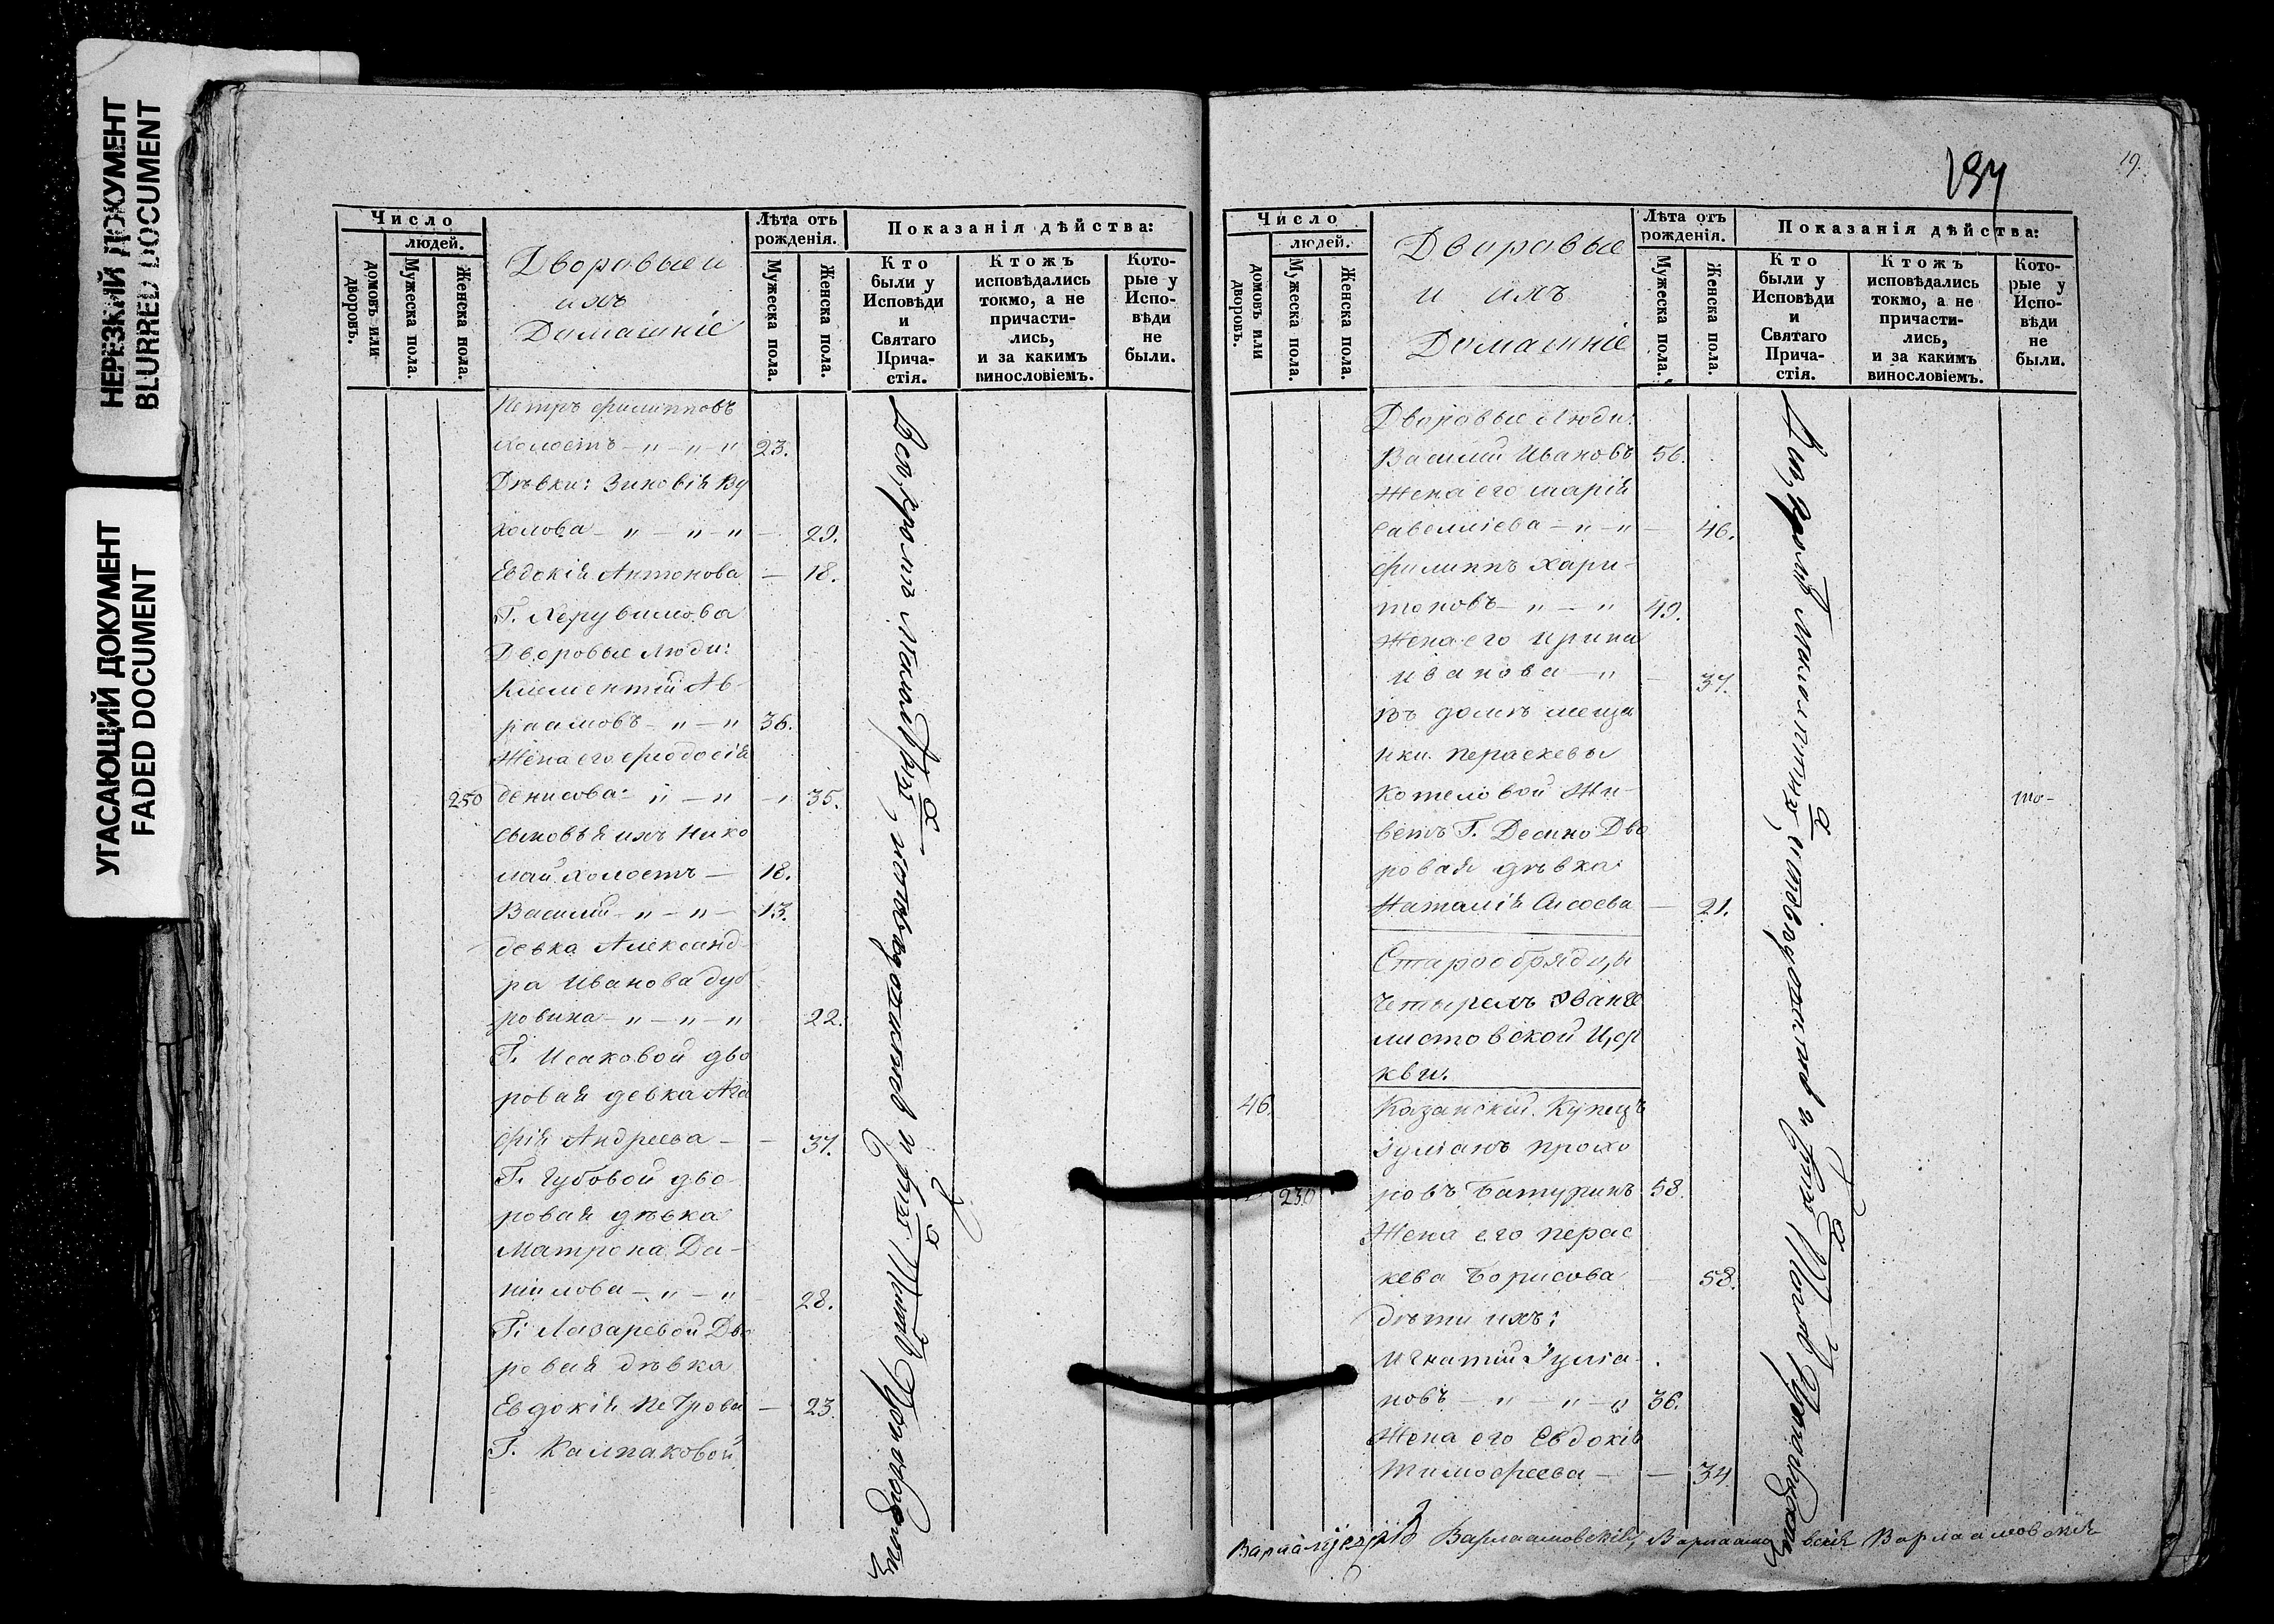 НЕРЕЗКИЙ ДОКУМЕНТ
BLURRED DOCUMENT
УГАСАЮЩИЙ ДОКУМЕНТ
FADED DOCUMENT
Число
людей.
домовъ или дворовъ.
Мужеска пола.
Женска пола.
Дворовые и
ихъ
Домашніе
Лѣта отъ рожденія.
Мужеска пола.
Женска пола.
Показанія дѣйства:
Кто были у Исповѣди и Святаго Прича-стія.
Ктожъ исповѣдались токмо, а не причасти-лись, и за какимъ винословіемъ.
Кото-рые у Испо-вѣди не были.
Петръ Филипповъ
холостъ — „ — „ — „ 23.
Дѣвки: Зиновія Ву
колова — „ — „ — „ — 29.
Евдокія Антонова — 18.
Г. Херувимова
Дворовые люди:
Климентій Ав-
раамовъ — „ — „ 36.
Жена его Феодосія
250 Денисова — „ — „ — „ 35.
Сыновья ихъ Нико
лай холостъ — 18.
Василій — „ — „ — 13.
девка Александ-
ра Иванова Дуб
ровина — „ — „ — „ 22.
Г. Исаковой дво
ровая девка Ага
фія Андреева — — 37.
Г. Губовой дво-
ровая дѣвка
Матрона Да-
ніилова — „ — „ 28.
Г. Лазаревой Дво
ровая дѣвка
Евдокія Петрова — 23.
Г. Калпаковой
137
19.
Число
людей.
домовъ или дворовъ.
Мужеска пола.
Женска пола.
Дворовые
и ихъ
Домашніе
Лѣта отъ рожденія.
Мужеска пола.
Женска пола.
Показанія дѣйства:
Кто были у Исповѣди и Святаго Прича-стія.
Ктожъ исповѣдались токмо, а не причасти-лись, и за какимъ винословіемъ.
Кото-рые у Испо-вѣди не были.
Дворовые люди:
Василій Ивановъ 56.
Жена его Марія
Савелліева — „ — „ — 46.
Филиппъ Хари-
тоновъ — „ — „ 49.
Жена его Ирина
Иванова — „ — 37.
Въ домѣ меща
нки Пераскевы
Котеловой Жи-
ветъ Г. Десино Дво
ровая дѣвка
Наталія Сысоева — 21.
Старообрядцы
Четырехъ Эванге
листовской Цер
кви.
46. Казанскій Купецъ
Іуліанъ Прохо
230 ровъ Батуринъ 58.
Жена его Перас
кева Борисова 58.
дѣти ихъ:
Игнатій Іуліа-
новъ — „ — „ — „ 36.
Жена его Евдокія
Тимофеева — — 34.
Варлаамовскія Варлаамовскія Варлаамовскія